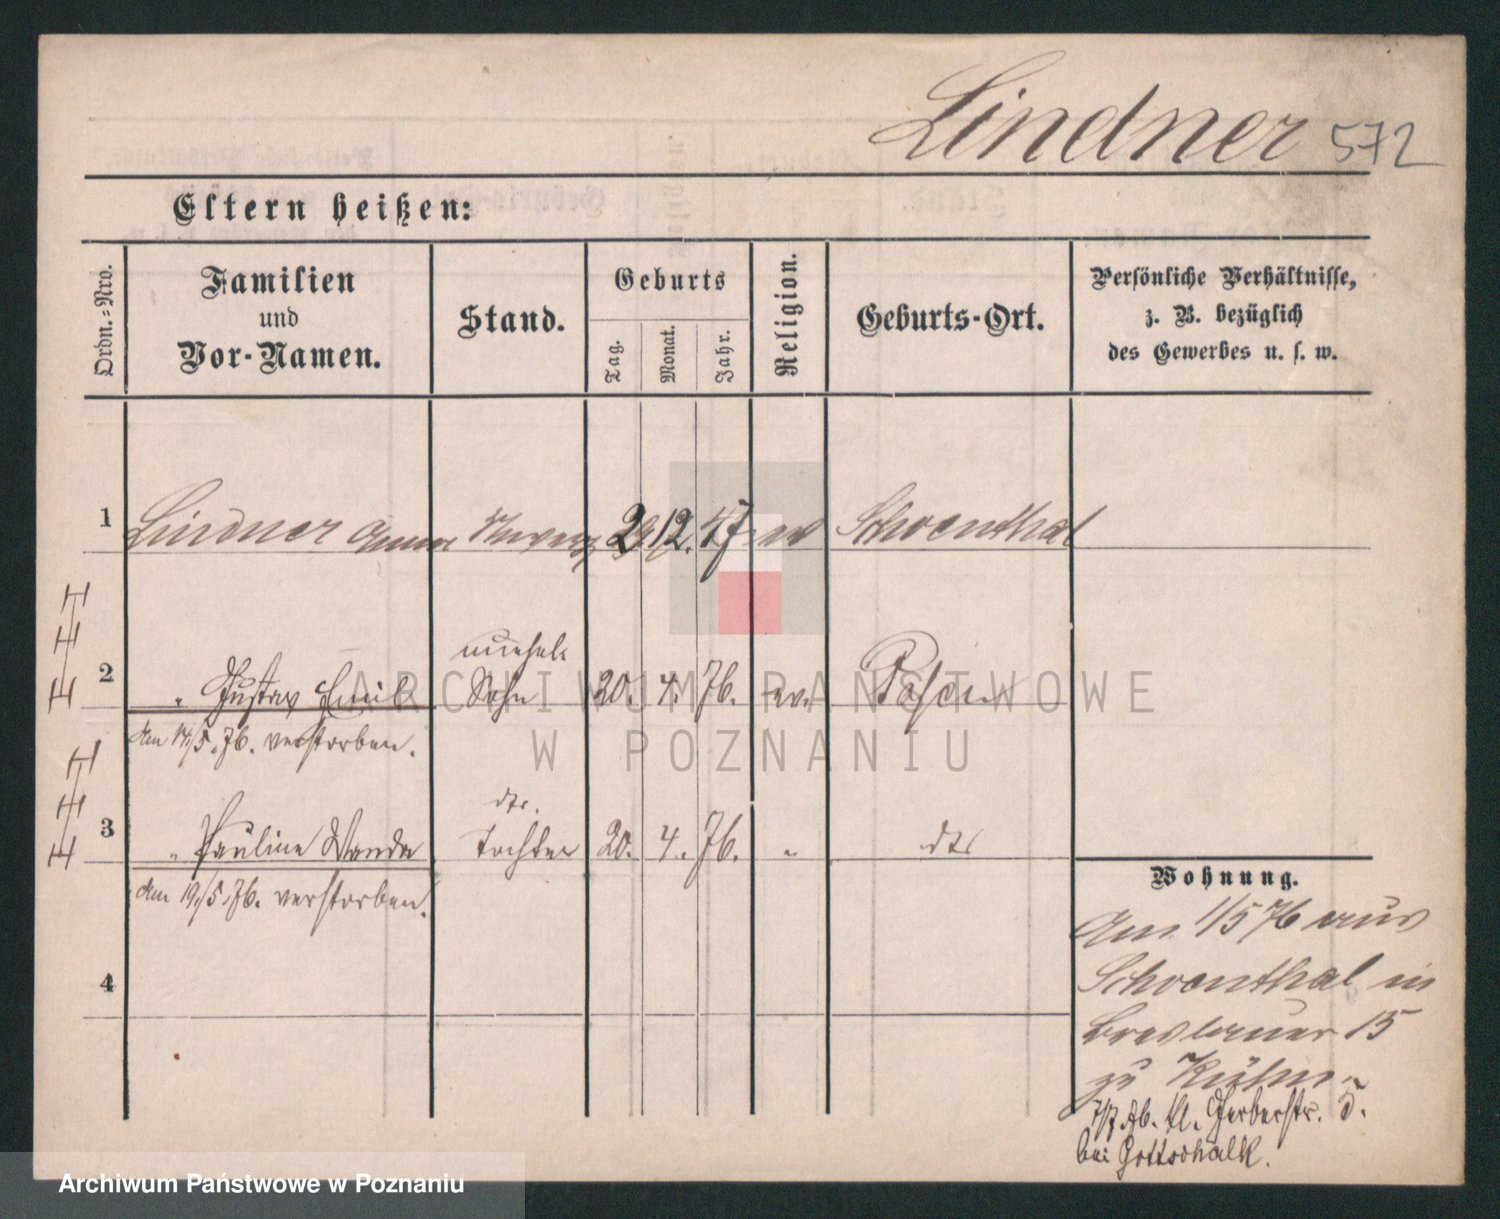 Lindner 572
Eltern heißen:
Ordn.=Nro.
Familien
und
Vor-Namen.
Stand.
Geburts
Tag.
Monat.
Jahr.
Religion.
Geburts-Ort.
Persönliche Verhältnisse,
z. B. bezüglich
des Gewerbes u. s. w.
1 Lindner Anna 12. 47 ev Schoenthal
unehel.
2 " Gustav Emil Sohn 20. 4. 76. ev. Posen
am 14/5. 76. verstorben.
dto.
3 " Pauline Wanda Tochter 20. 4. 76. " dto
am 19/5. 76. verstorben.
4
Wohnung.
Am 1/5 76 aus
Schoenthal in
Breslauer 15
zu Kühn
7/7. 76. kl. Gerberstr. 5.
bei Gottschalk.
ARCHIWUM PAŃSTWOWE
W POZNANIU
Archiwum Państwowe w Poznaniu